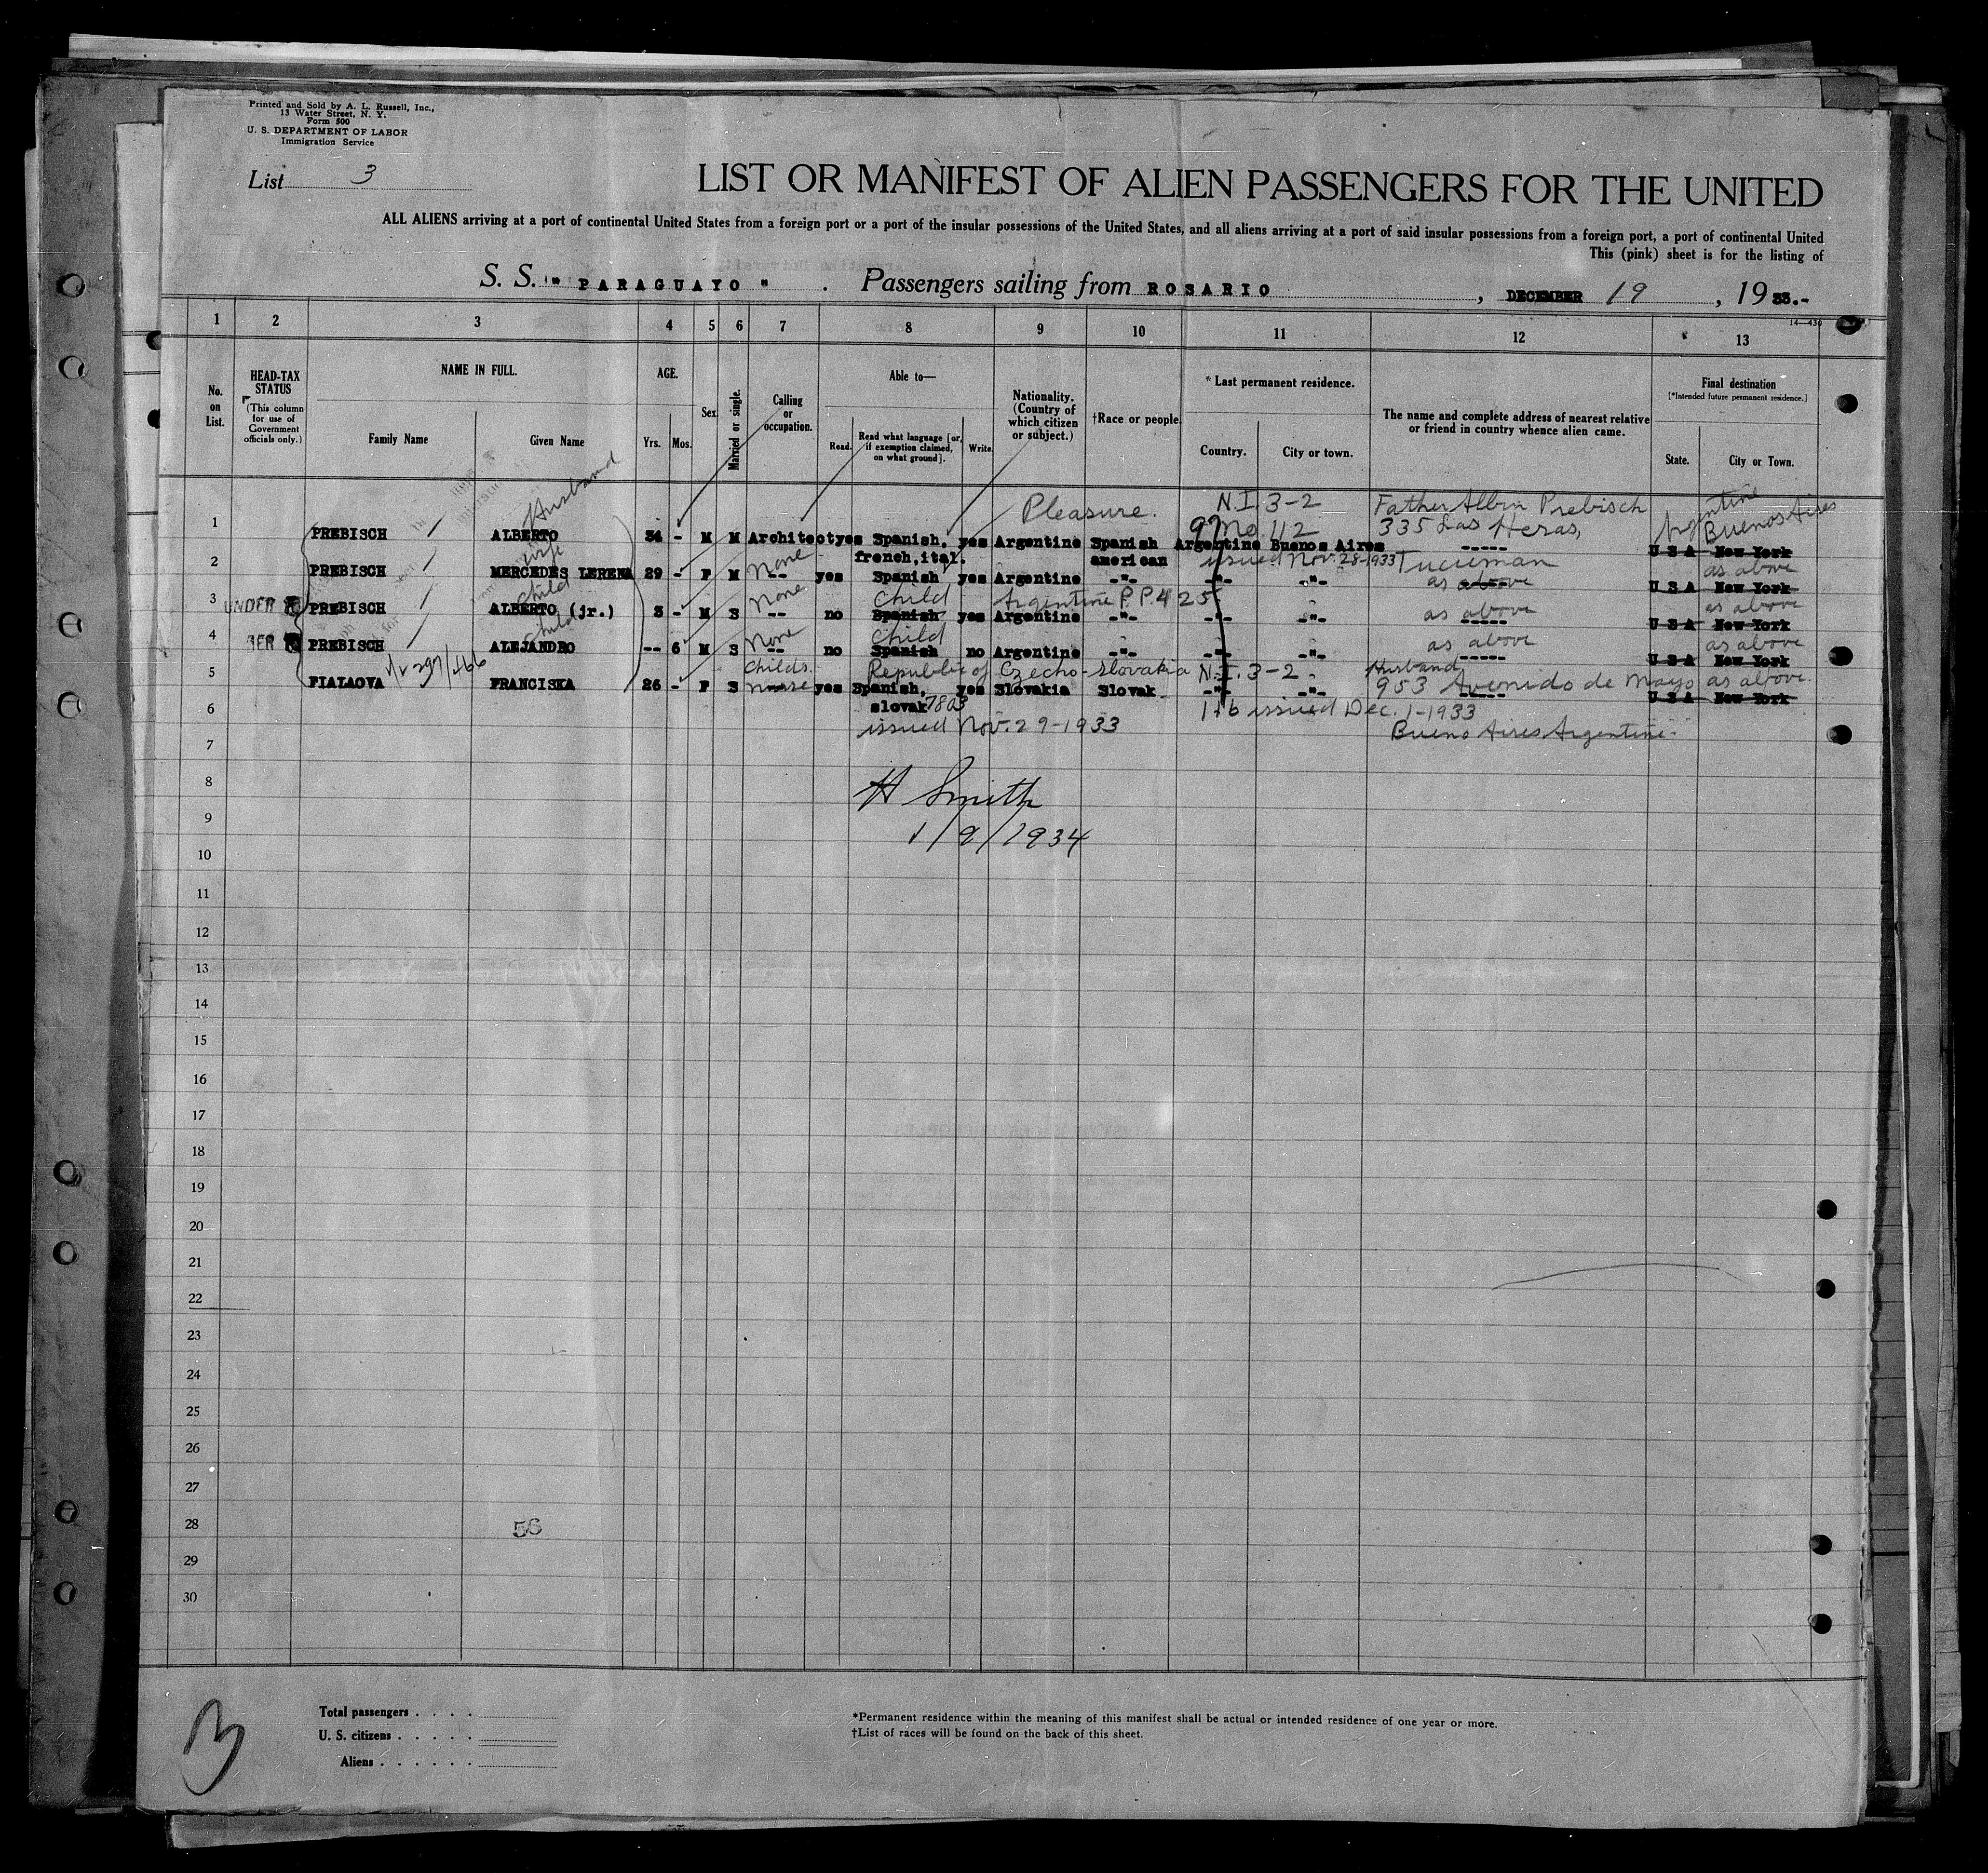 Printed and Sold by A. L. Russell, Inc.,
13 Water Street, N. Y.
Form 500
U. S. DEPARTMENT OF LABOR
Immigration Service
List 3
LIST OR MANIFEST OF ALIEN PASSENGERS FOR THE UNITED
ALL ALIENS arriving at a port of continental United States from a foreign port or a port of the insular possessions of the United States, and all aliens arriving at a port of said insular possessions from a foreign port, a port of continental United
This (pink) sheet is for the listing of
S. S. " PARAGUAYO " . Passengers sailing from ROSARIO , DECEMBER 19 , 1933.-
1 2 3 4 5 6 7 8 9 10 11 12 13
14—430
No. on List.
HEAD-TAX STATUS
(This column for use of Government officials only.)
NAME IN FULL.
Family Name Given Name
AGE.
Yrs. Mos.
Sex
Married or single.
Calling or occupation.
Able to—
Read. Read what language [or, if exemption claimed, on what ground]. Write.
Nationality. (Country of which citizen or subject.)
†Race or people.
* Last permanent residence.
Country. City or town.
The name and complete address of nearest relative or friend in country whence alien came.
Final destination
[*Intended future permanent residence.]
State. City or Town.
Husband Pleasure. N.I. 3-2 Father Albin Prebisch Argentine
1 PREBISCH ALBERTO 34 - M M Architect yes Spanish, yes Argentine Spanish Argentine Buenos Aires ----- U S A New York
97 No 112 335 Las Heras, Buenos Aires
french, ital. american issued Nov. 28-1933 Tucuman
wife None as above
2 PREBISCH MERCEDES LERENA 29 - F M -- yes Spanish yes Argentine -"- -"- -"- ----- U S A New York
child None child Argentine P.P. 4125 as above as above
3 UNDER PREBISCH ALBERTO (jr.) 3 - M S -- no Spanish yes Argentine -"- -"- -"- ----- U S A New York
child None child as above as above
4 PREBISCH ALEJANDRO -- 6 M S -- no Spanish no Argentine -"- -"- -"- ----- U S A New York
as above as above
childs. Republic of Czecho-Slovakia N.I. 3-2 Husband
5 FIALAOVA FRANCISKA 26 - F S nurse yes Spanish, yes Slovakia Slovak -"- -"- ----- U S A New York
953 Avenido de Mayo as above.
6 slovak 7803 116 issued Dec. 1-1933
7 issued Nov. 29-1933 Bueno Aires Argentine.
8
H Smith
9
1/9/1934
10
11
12
13
14
15
16
17
18
19
20
21
22
23
24
25
26
27
28
56
29
30
3
Total passengers . . . .
U. S. citizens . . . . .
Aliens . . . . . .
*Permanent residence within the meaning of this manifest shall be actual or intended residence of one year or more.
†List of races will be found on the back of this sheet.